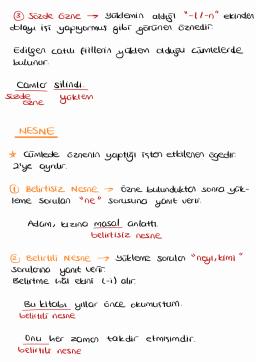 ③ Sözde Özne → Yüklemin aldığı "-l/-n" ekinden
dolayı işi yapıyormuş gibi görünen öznedir.
Edilgen çatılı fiillerin yüklem olduğu cümlelerde
bulunur.
Camlar silindi.
sözde özne yüklem
NESNE
* Cümlede öznenin yaptığı işten etkilenen ögedir.
2'ye ayrılır.
① Belirtisiz Nesne → Özne bulunduktan sonra yük-
leme sorulan "ne" sorusuna yanıt verir.
Adam, kızına masal anlattı.
belirtisiz nesne
② Belirtili Nesne → Yükleme sorulan "neyi, kimi"
sorularına yanıt verir.
Belirtme hâl ekini (-i) alır.
Bu kitabı yıllar önce okumuştum.
belirtili nesne
Onu her zaman takdir etmişimdir.
belirtili nesne